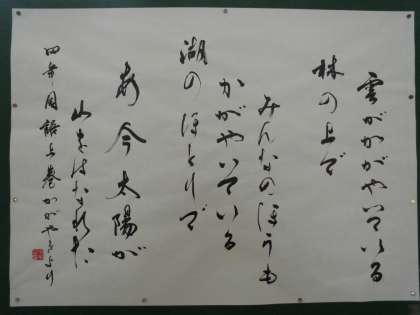 雲がかがやいている
林の上で
みんなのほうも
かがやいている
湖のほとりで
あ今太陽が
山をはなれた
四年国語上巻かがやきより